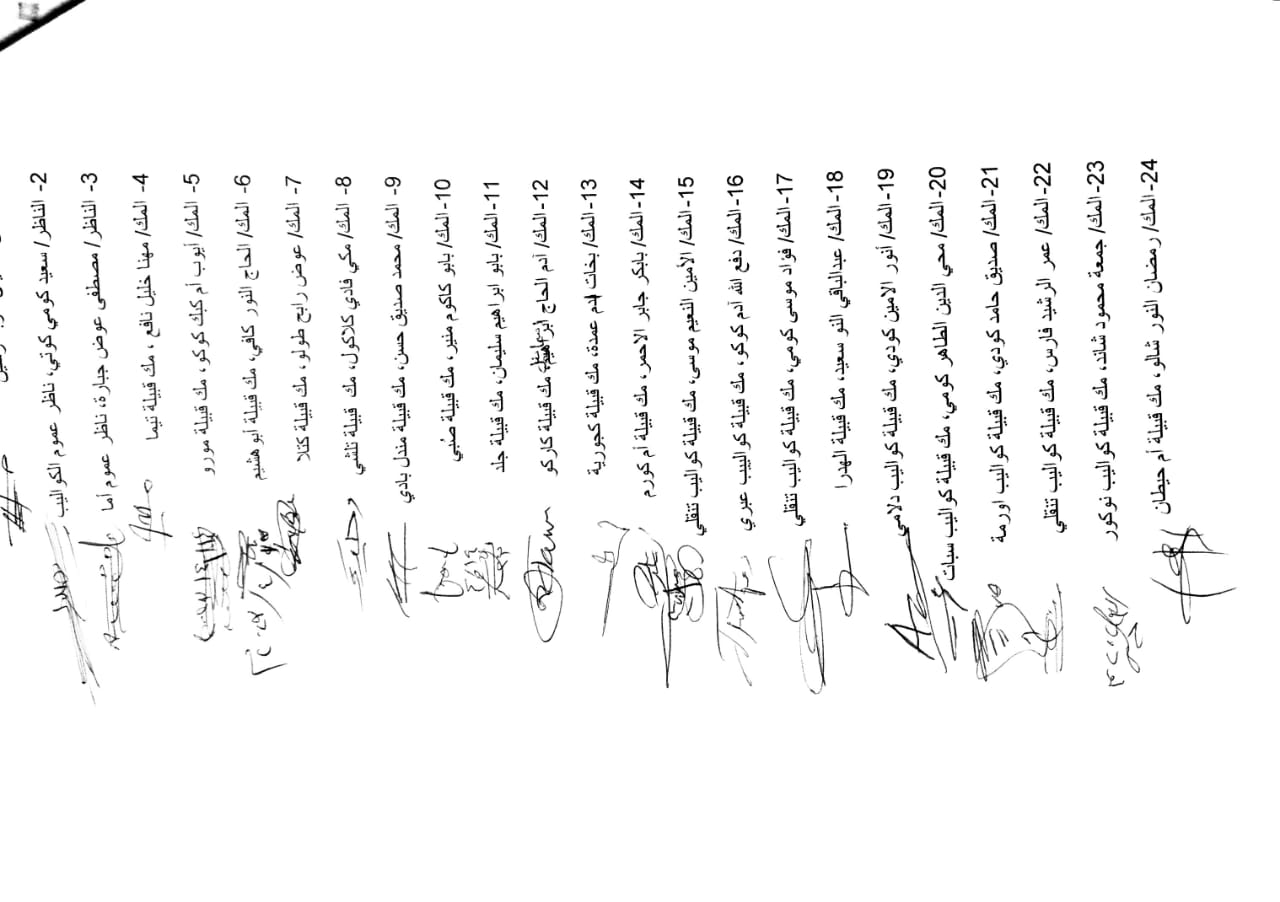 2- الناظر/ سعيد كومي كوتي، ناظر عموم الكواليب
3- الناظر/ مصطفى عوض جبارة، ناظر عموم أما
4- المك/ مهنا خليل نافع، مك قبيلة تيما
5- المك/ أيوب أم كبك كوكو، مك قبيلة مورو
6- المك/ الحاج النور كافي، مك قبيلة أبو هشيم
7- المك/ عوض رابح طولو، مك قبيلة كتلا
8- المك/ مكي فادي كلاكول، مك قبيلة تلشي
9- المك/ محمد صديق حسن، مك قبيلة مندل بادي
10- المك/ بابو كاكوم منير، مك قبيلة صُبي
11- المك/ بابو ابراهيم سليمان، مك قبيلة جلد
12- المك/ آدم الحاج، مك قبيلة كاركو
13- المك/ بخات ادم عمدة، مك قبيلة كجورية
14- المك/ بابكر جابر الاحمر، مك قبيلة أم كورم
15- المك/ الأمين النعيم موسى، مك قبيلة كواليب تنقلي
16- المك/ دفع الله آدم كوكو، مك قبيلة كواليب عبري
17- المك/ فؤاد موسى كومي، مك قبيلة كواليب تنقلي
18- المك/ عبدالباقي النو سعيد، مك قبيلة الهدرا
19- المك/ أنور الامين كودي، مك قبيلة كواليب دلامي
20- المك/ محي الدين الطاهر كومي، مك قبيلة كواليب سبات
21- المك/ صديق حامد كودي، مك قبيلة كواليب اورمة
22- المك/ عمر الرشيد فارس، مك قبيلة كواليب تنقلي
23- المك/ جمعة محمود شاند، مك قبيلة كواليب نوكور
24- المك/ رمضان النور شالو، مك قبيلة أم حيطان